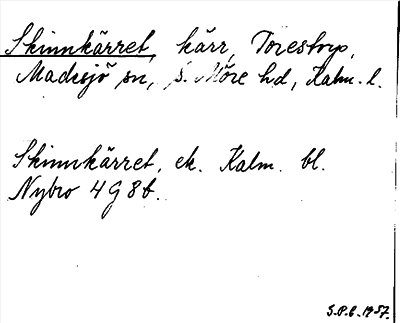 Skinnkärret, kärr, Torestorp,
Madesjö sn, S. Möre hd, Kalm. l.
Skinnkärret, ek. Kalm. bl.
Nybro 4G8b.
S.P.B. 1957.